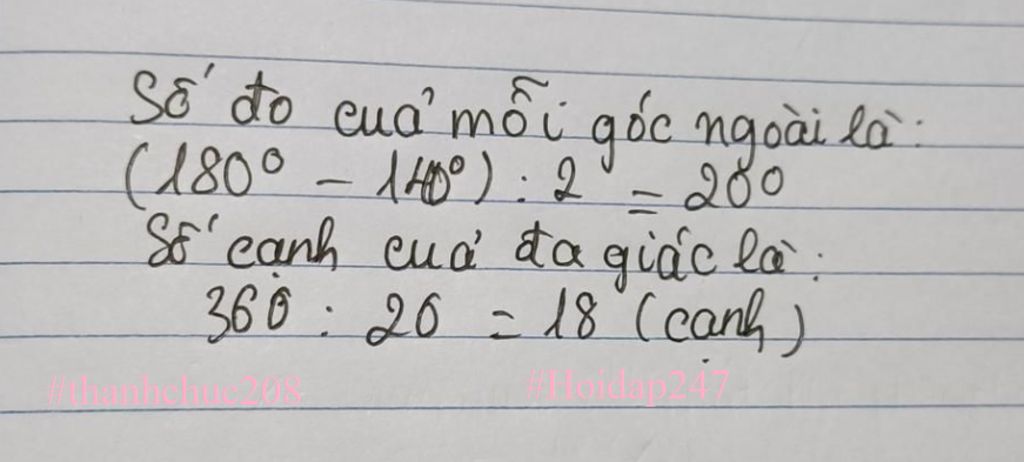 Số đo của mỗi góc ngoài là:
(180° - 140°) : 2 = 20°
Số cạnh của đa giác là:
360 : 20 = 18 (cạnh)
#thanhchuc208 #Hoidap247